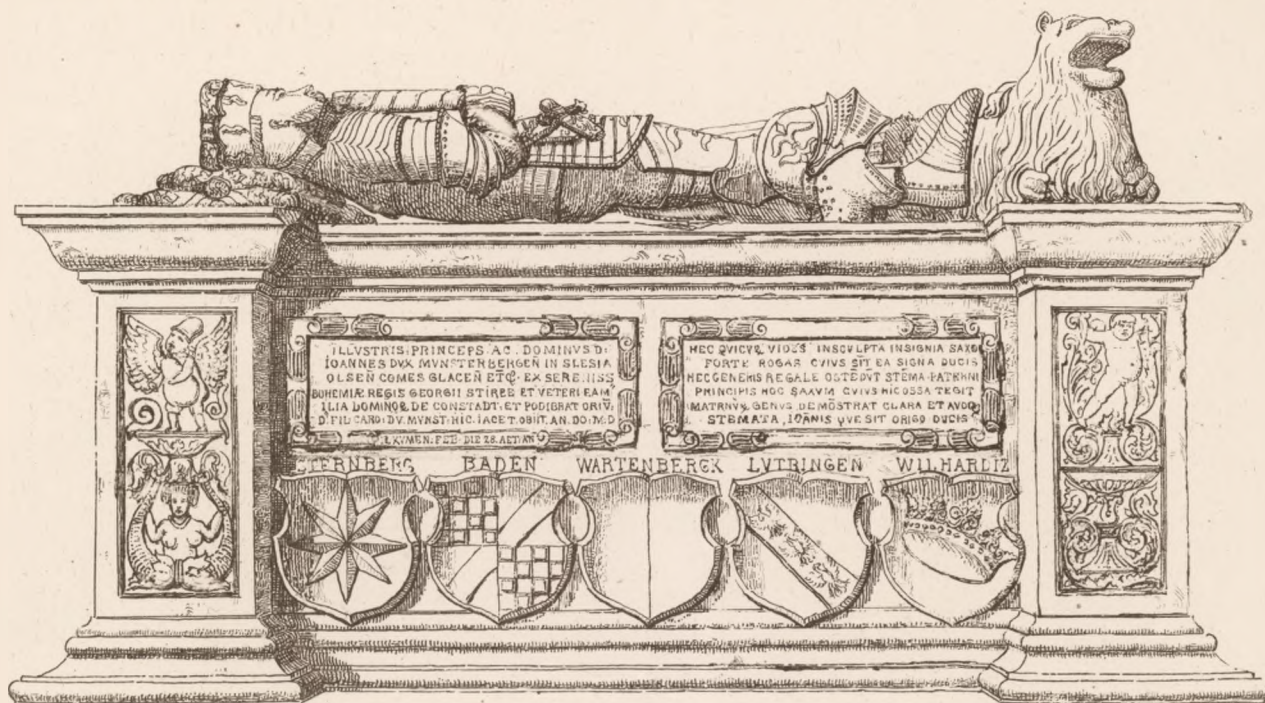 ILLVSTRIS·PRINCEPS·AC·DOMINVS D:
IOANNES DVX MVNSTERBERGEÑ IN SLESIA
OLSEÑ COMES GLACEÑ ETC̄· EX SERE.IISS
BOHEMIÆ REGIS GEORGII STIREE ET VETERI FAM
ILIA DOMINOR DE CONSTADT·ET PODIBRAT ORIV:
D.FIL CARO: DV. MVNST: HIC.IACET.OBIIT.AN.DO:M.D
FEB· DIE 28. AET:AN
HEC QVICVQ VIDES INSCVLPTA INSIGNIA SAXO
FORTE ROGAS CVIVS SĪT EA SIGNA DVCIS
HEC GENERIS REGALE OSTĒDVT STĒMA·PATERNI
PRINCIPIS HOC SAXVM CVIVS HIC OSSA TEGIT
MATRNVM GENVS DEMŌSTRAT CLARA ET AVOR
STEMATA, IOĀNIS QVE SIT ORIGO DVCIS
STERNBERG BADEN WARTENBERGK LVTRINGEN WILHARLIZ